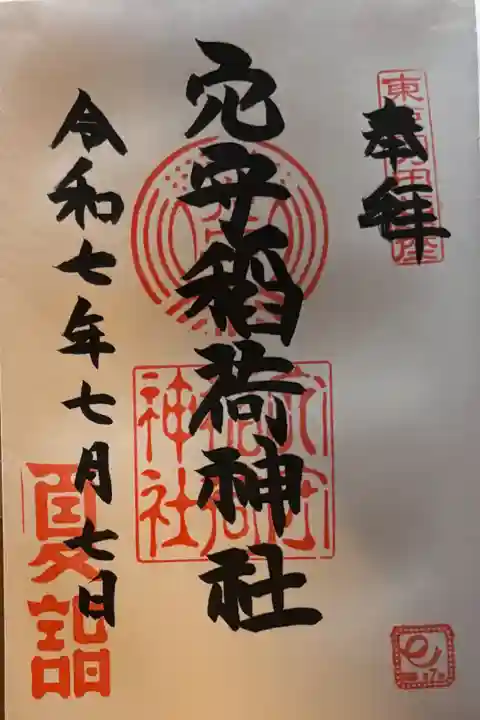 奉拝
穴守稲荷神社
令和七年七月七日
穴守
稲荷
神社
夏詣